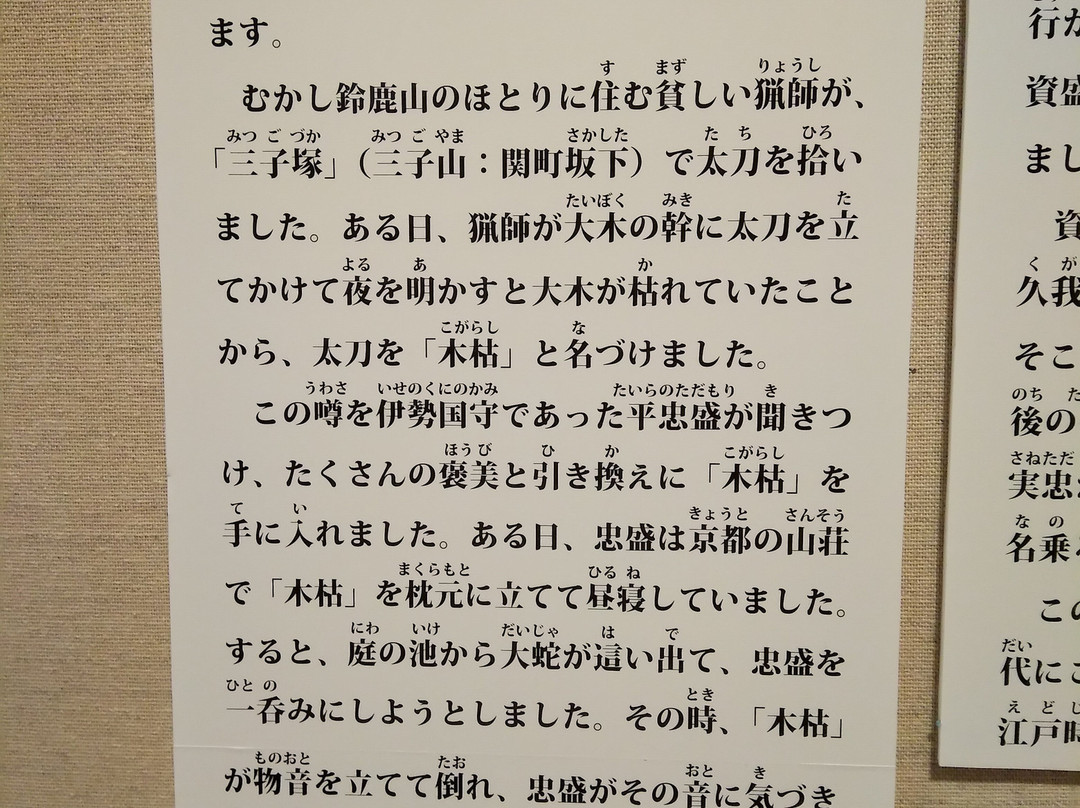 ます。
むかし鈴鹿山のほとりに住む貧しい猟師が、
「三子塚」（三子山：関町坂下）で太刀を拾い
ました。ある日、猟師が大木の幹に太刀を立
てかけて夜を明かすと大木が枯れていたこと
から、太刀を「木枯」と名づけました。
この噂を伊勢国守であった平忠盛が聞きつ
け、たくさんの褒美と引き換えに「木枯」を
手に入れました。ある日、忠盛は京都の山荘
で「木枯」を枕元に立てて昼寝していました。
すると、庭の池から大蛇が這い出て、忠盛を
一呑みにしようとしました。その時、「木枯」
が物音を立てて倒れ、忠盛がその音に気づき
行か
資盛
まし
資
久我
そこ
後の
実忠
名乗
この
代にこ
江戸時